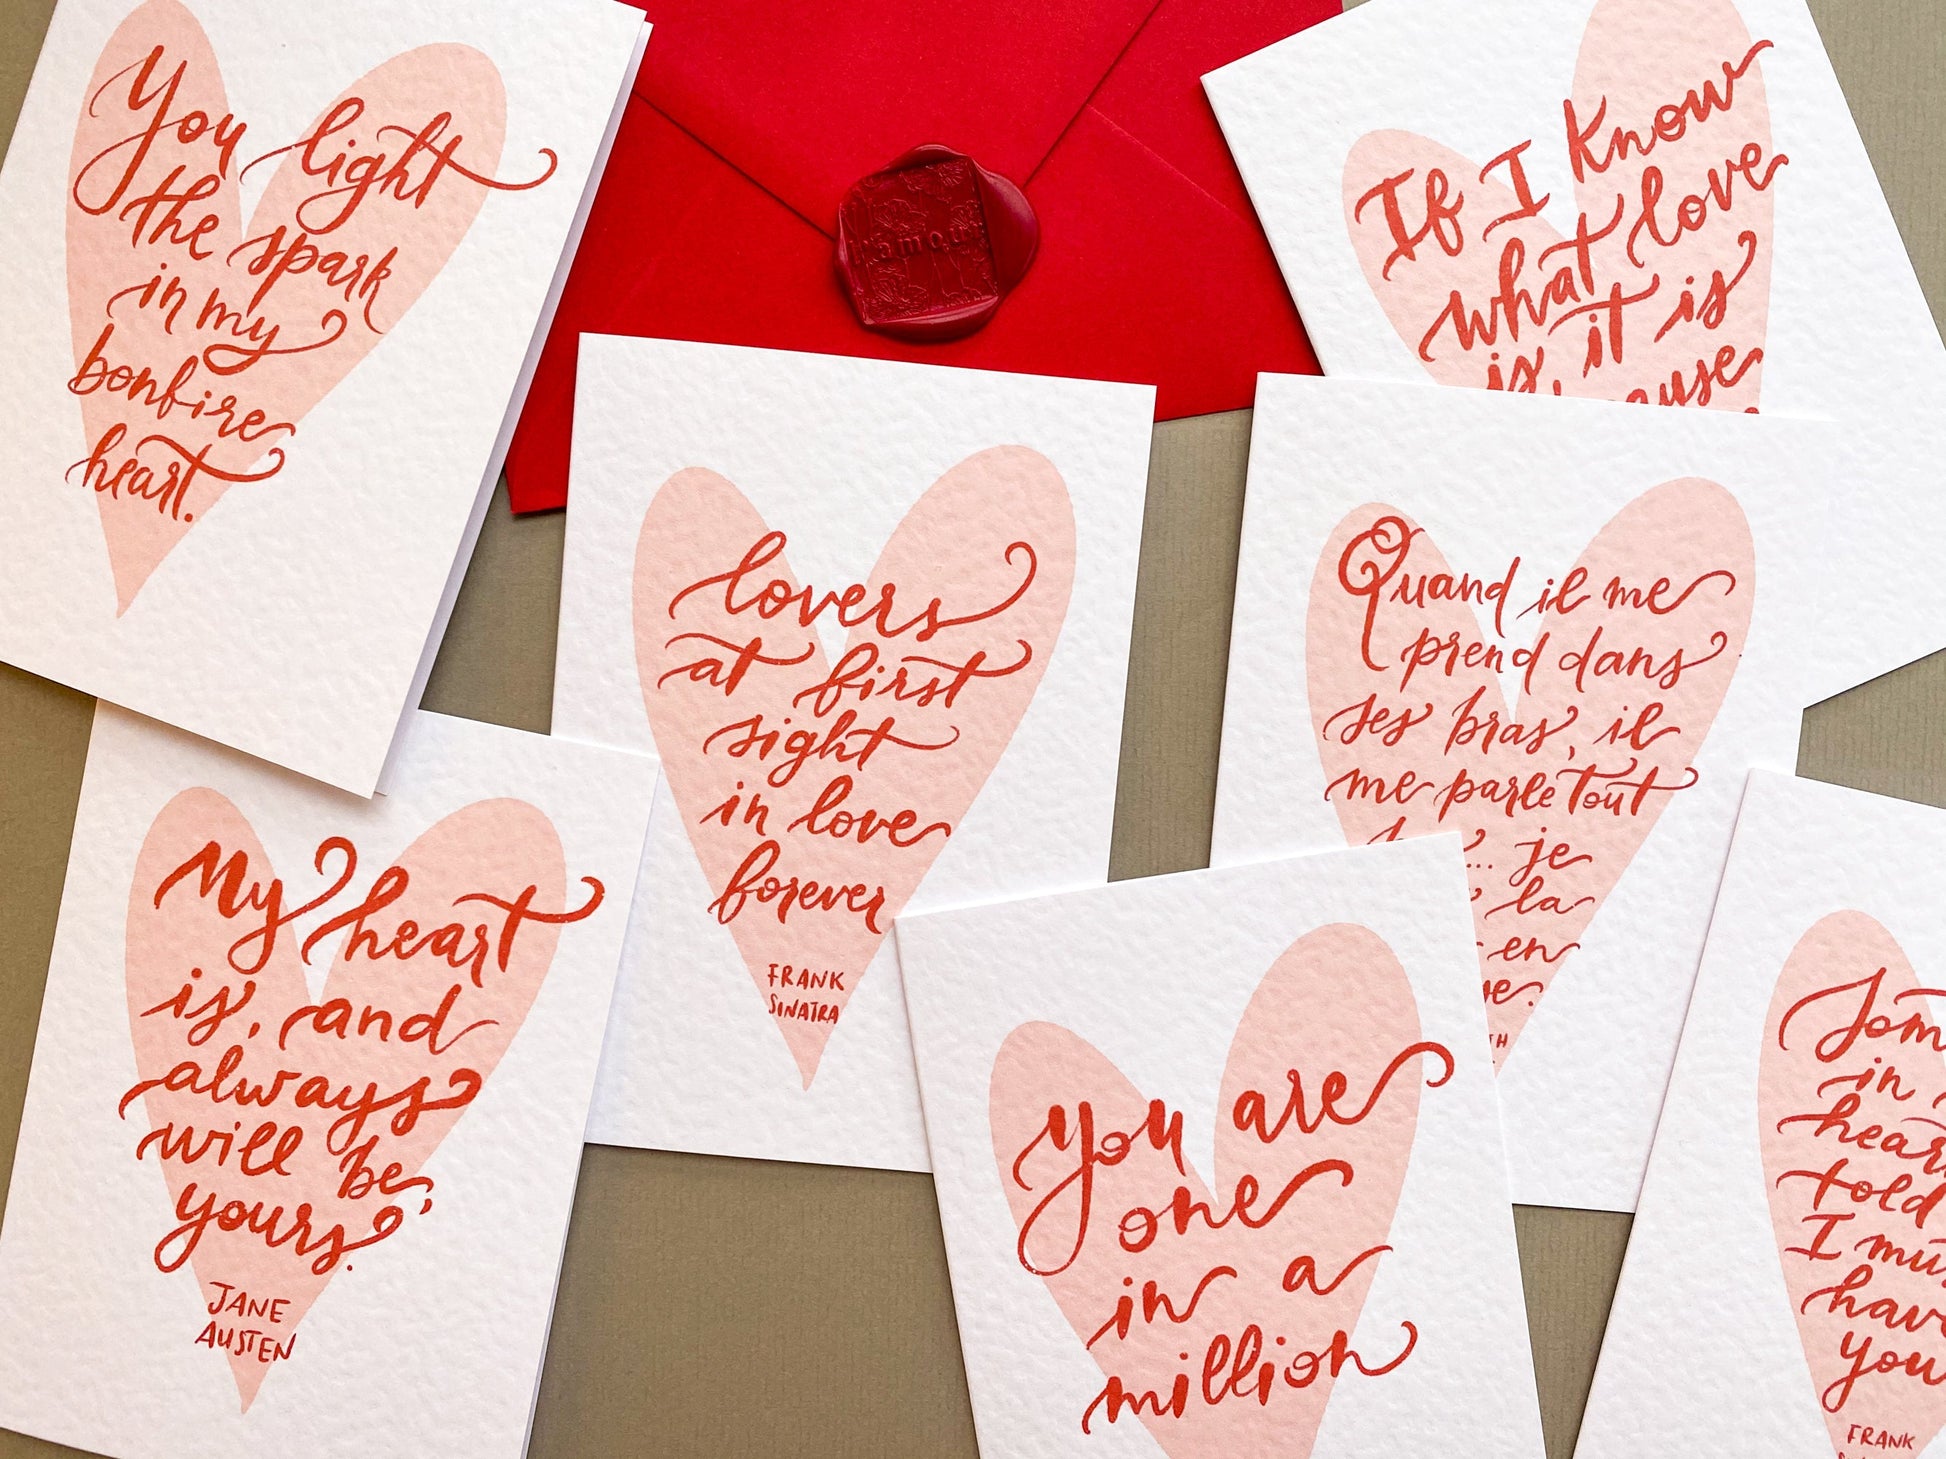 You light
the spark
in my
bonfire
heart.
amour
If I know
what love
is, it is
lovers
at first
sight
in love
forever
FRANK
SINATRA
Quand il me
prend dans
ses bras, il
me parle tout
je
la
en
My heart
is, and
always
will be,
yours.
JANE
AUSTEN
You are
one
in a
million
in
told
I
you
FRANK